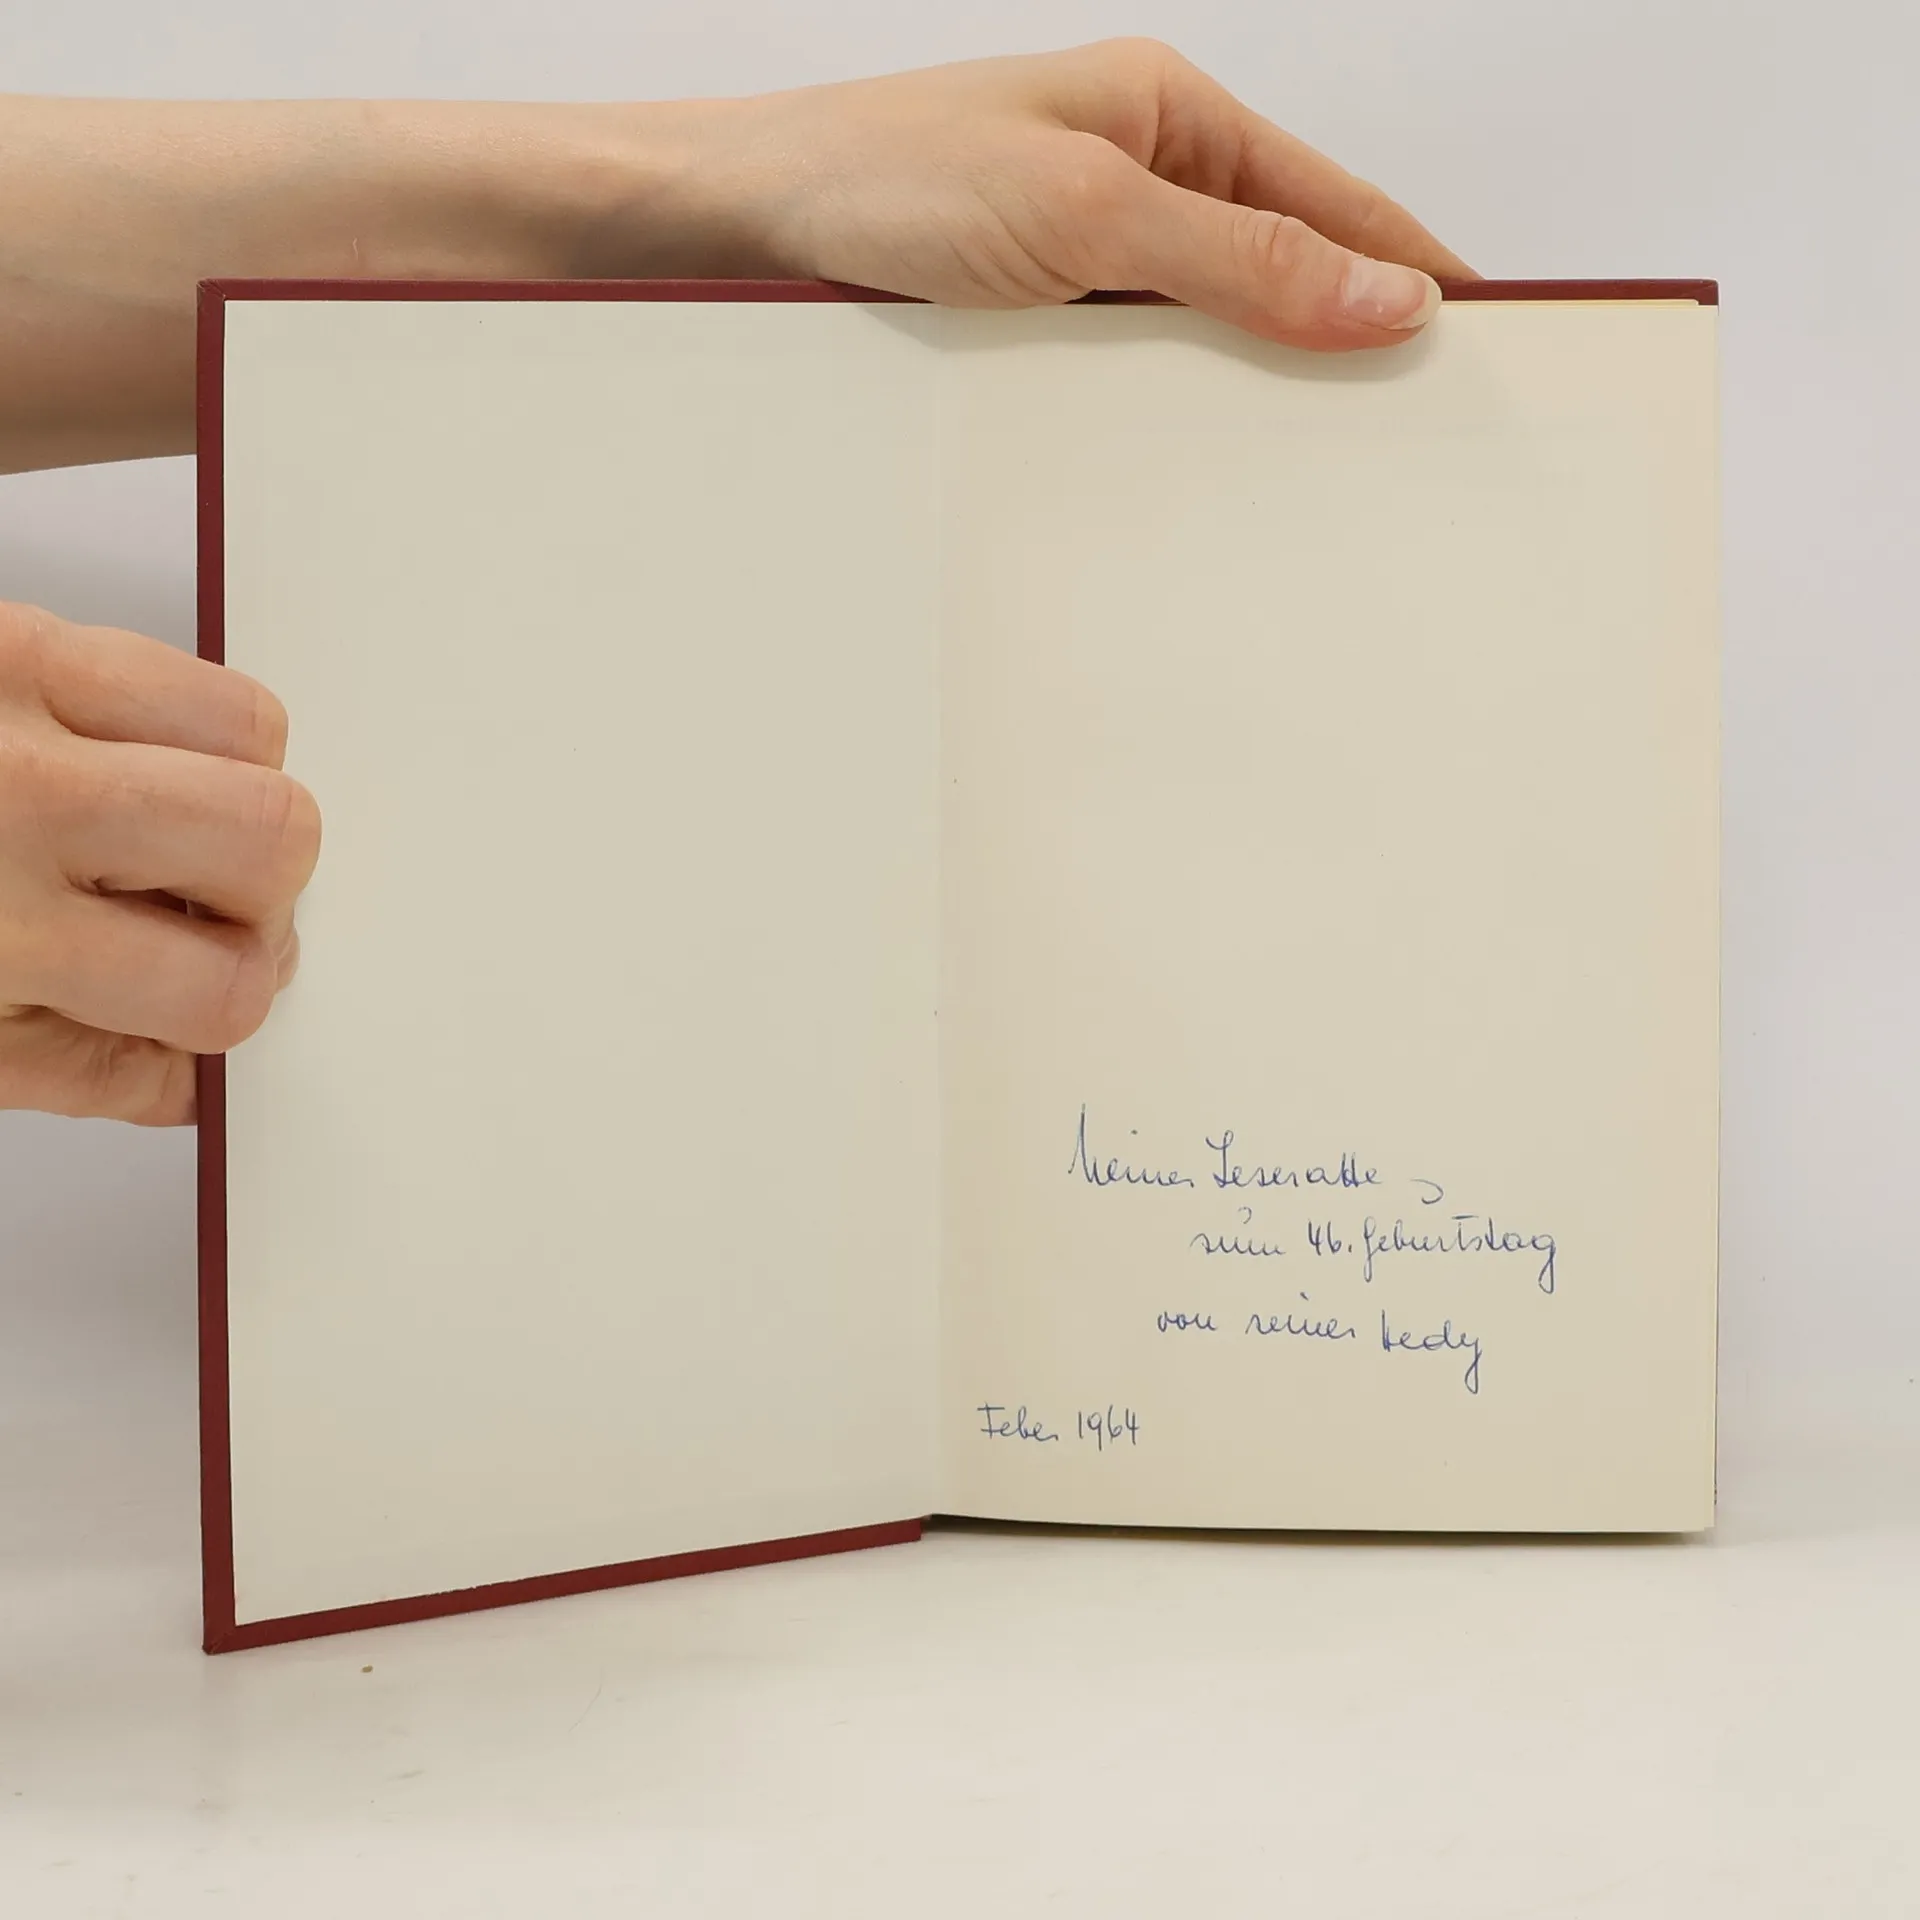 Meiner Leseratte
zum 46. Geburtstag
von seiner Hedy
Feber 1964